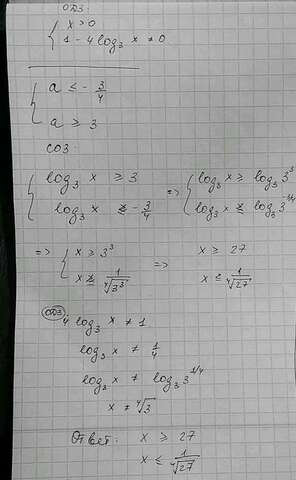 ОДЗ:
{ x > 0
1 - 4 log₃ x ≠ 0
{ a ≤ - 3/4
a ≥ 3
СОЗ:
{ log₃ x ≥ 3 => { log₃ x ≥ log₃ 3³
log₃ x ≤ - 3/4 log₃ x ≤ log₃ 3^(-3/4)
=> { x ≥ 3³ => x ≥ 27
x ≤ 1/⁴√3³ x ≤ 1/⁴√27
ОДЗ: 4 log₃ x ≠ 1
log₃ x ≠ 1/4
log₃ x ≠ log₃ 3^(1/4)
x ≠ ⁴√3
Ответ: x ≥ 27
x ≤ 1/⁴√27